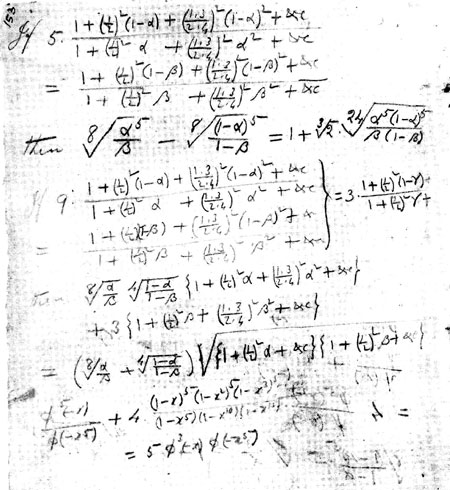 153
If 5. \frac{1+(\frac{1}{2})^2(1-α)+(\frac{1.3}{2.4})^2(1-α)^2+&c}{1+(\frac{1}{2})^2 α+(\frac{1.3}{2.4})^2 α^2+&c}
= \frac{1+(\frac{1}{2})^2(1-β)+(\frac{1.3}{2.4})^2(1-β)^2+&c}{1+(\frac{1}{2})^2 β+(\frac{1.3}{2.4})^2 β^2+&c}
then \sqrt[8]{\frac{α^5}{β}} - \sqrt[8]{\frac{(1-α)^5}{1-β}} = 1+\sqrt[3]{2}.\sqrt[24]{\frac{α^5(1-α)^5}{β(1-β)}}
If 9. \frac{1+(\frac{1}{2})^2(1-α)+(\frac{1.3}{2.4})^2(1-α)^2+&c}{1+(\frac{1}{2})^2 α+(\frac{1.3}{2.4})^2 α^2+&c}
= \frac{1+(\frac{1}{2})^2(1-β)+(\frac{1.3}{2.4})^2(1-β)^2+&}{1+(\frac{1}{2})^2 β+(\frac{1.3}{2.4})^2 β^2+&c} } = 3.\frac{1+(\frac{1}{2})^2(1-γ)+}{1+(\frac{1}{2})^2 γ+}
then \sqrt[8]{\frac{α}{β}} \sqrt[4]{\frac{1-α}{1-β}} {1+(\frac{1}{2})^2 α+(\frac{1.3}{2.4})^2 α^2+&c}
+ 3 {1+(\frac{1}{2})^2 β+(\frac{1.3}{2.4})^2 β^2+&c}
= (\sqrt[8]{\frac{α}{β}} + \sqrt[4]{\frac{1-α}{1-β}}) \sqrt{{1+(\frac{1}{2})^2 α+&c}{1+(\frac{1}{2})^2 β+&c}}
\frac{φ^5(-x)}{φ(-x^5)} + 4.\frac{(1-x)^5(1-x^2)^5(1-x^3)^5}{(1-x^5)(1-x^{10})(1-x^{15})} =
= 5 φ^3(-x) φ(-x^5)